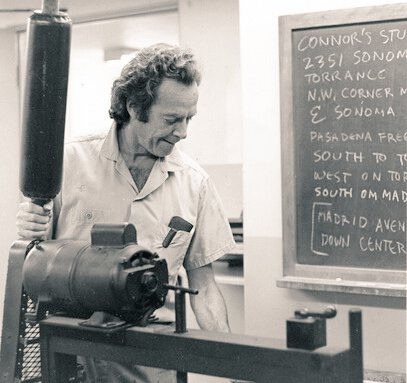 CONNOR'S STU
2351 SONOM
TORRANCE
N.W. CORNER M
& SONOMA
PASADENA FREE
SOUTH TO T
WEST ON TOR
SOUTH OM MAD
MADRID AVEN
DOWN CENTER